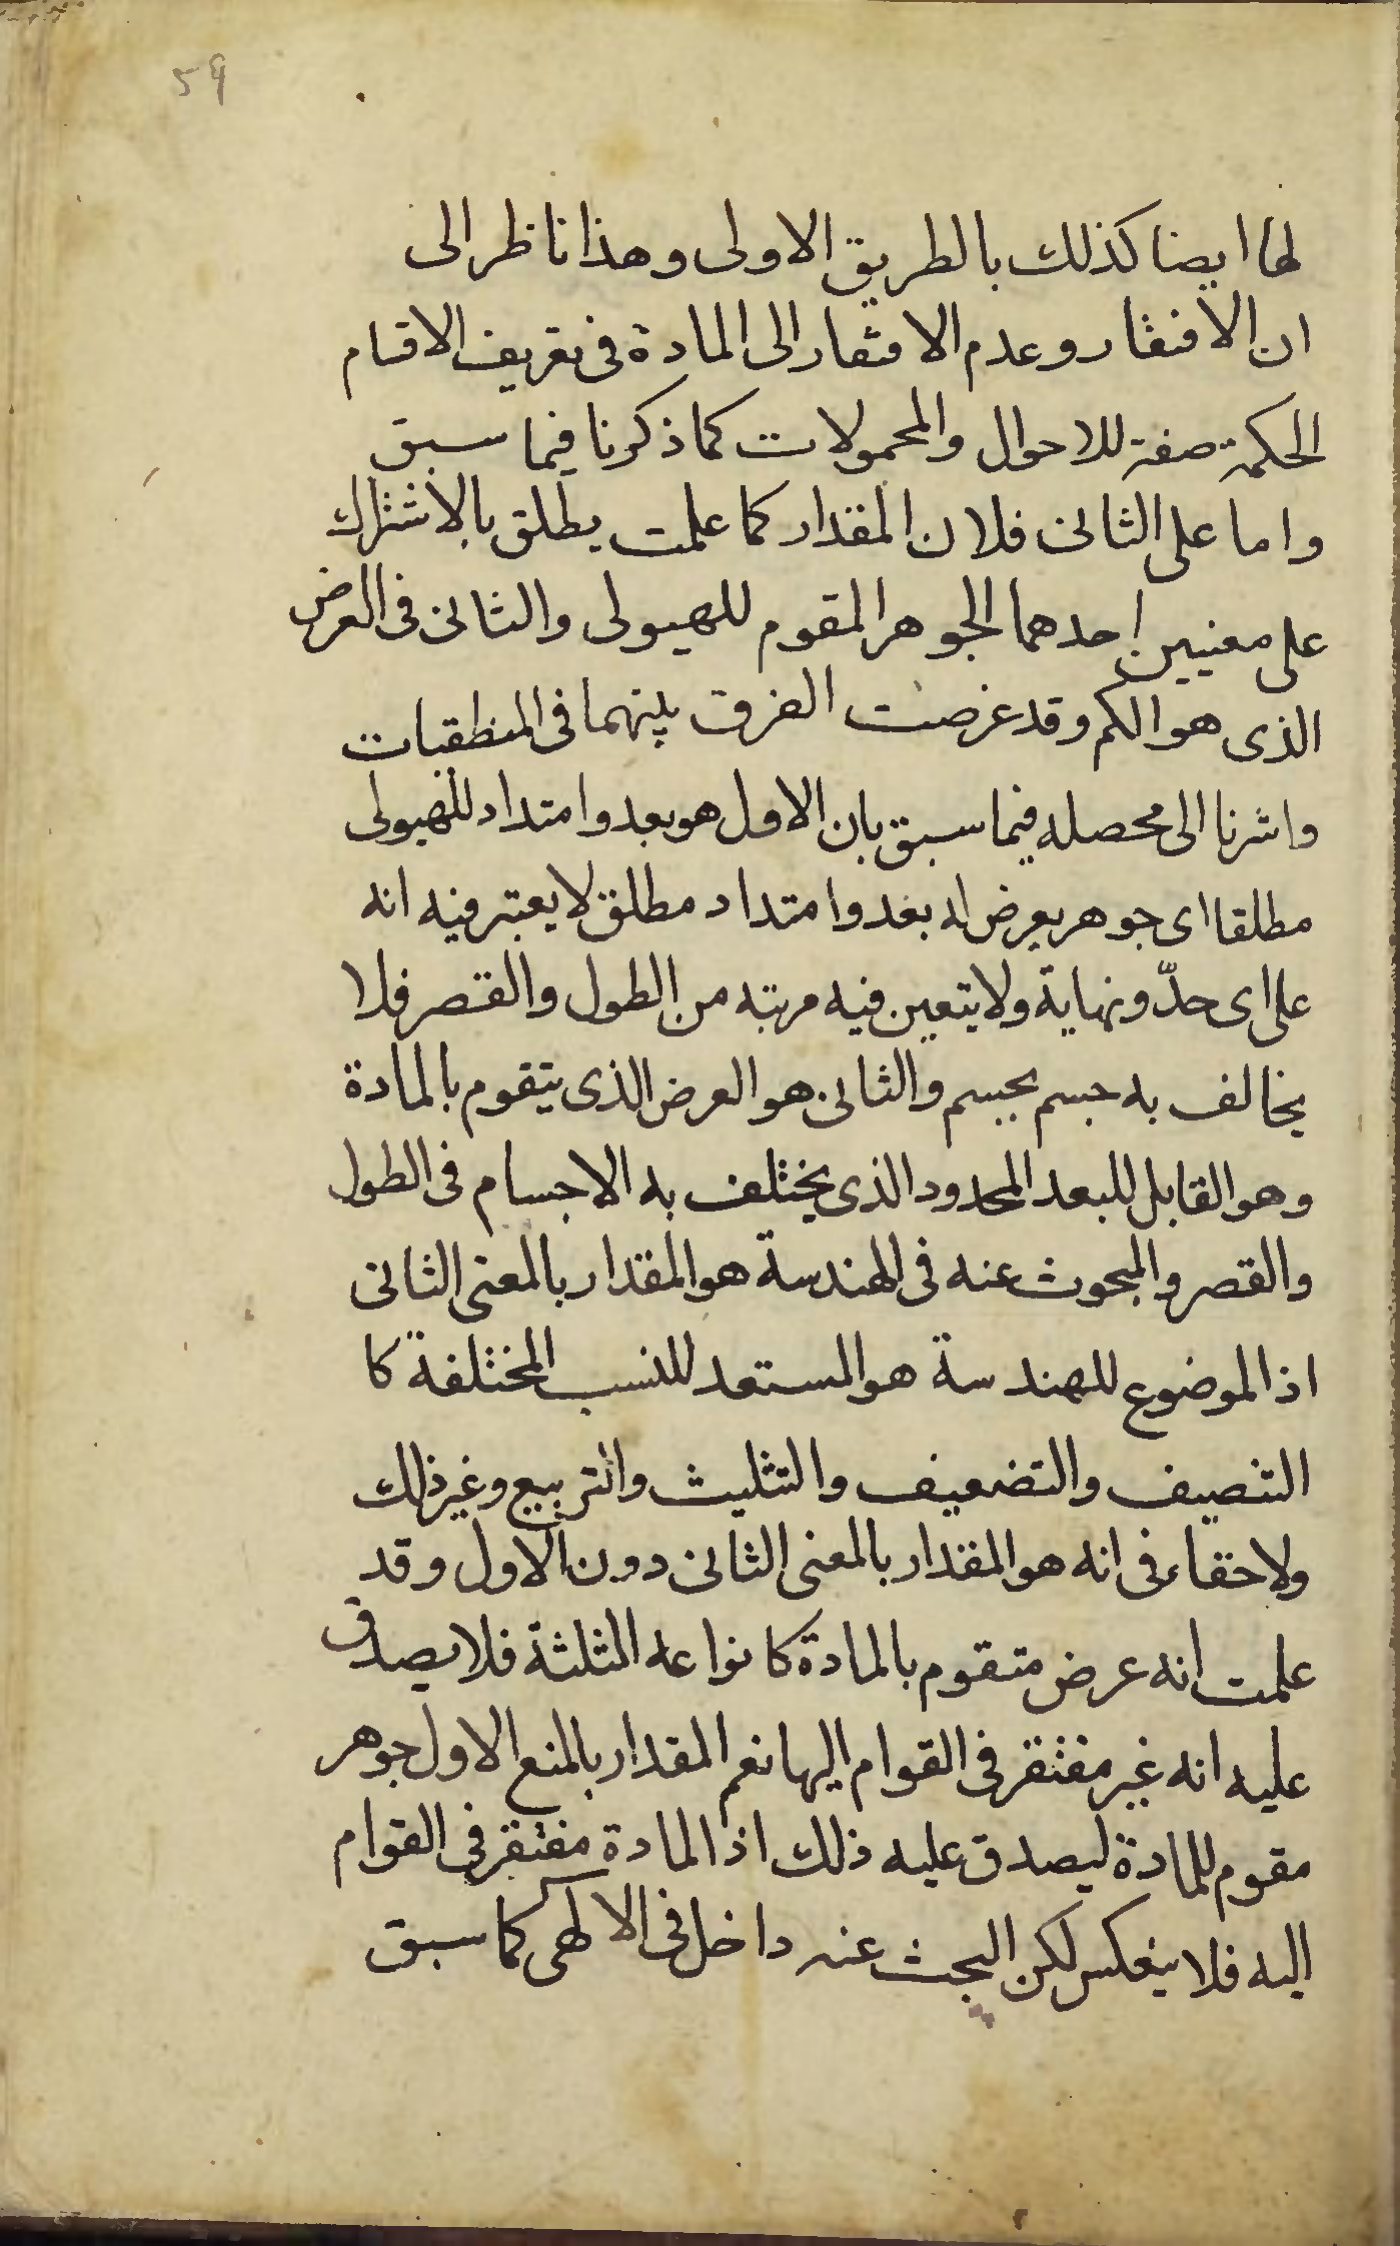 ٥٩
لها ايضا كذلك بالطريق الاولى وهذا ناظر الى
ان الافتقار وعدم الافتقار الى المادة فى تعريف الاقسام
الحكمة صفة للاحوال والمحمولات كما ذكرنا فيما سبق
واما على الثانى فلان المقدار كما علمت يطلق بالاشتراك
على معنيين احدهما الجوهر المقوم للهيولى والثانى فى العرض
الذى هو الكم وقد عرضت الفرق بينهما فى المنطقيات
واشرنا الى محصله فيما سبق بان الاول هو بعد وامتداد للهيولى
مطلقا اى جوهر يعرض له بعد وامتداد مطلق لا يعتبر فيه انه
على اى حدّ ونهاية ولا يتعين فيه مرتبه من الطول والقصر فلا
يخالف به جسم بجسم والثانى هو العرض الذى يتقوم بالمادة
وهو القابل للبعد المحدود الذى يختلف به الاجسام فى الطول
والقصر والمبحوث عنه فى الهندسة هو المقدار بالمعنى الثانى
اذ الموضوع للهندسة هو المستعد للنسب المختلفة كا
التنصيف والتضعيف والتثليث والتربيع وغير ذلك
ولا خفاء فى انه هو المقدار بالمعنى الثانى دون الاول وقد
علمت انه عرض متقوم بالمادة كانواعه الثلثة فلا يصدق
عليه انه غير مفتقر فى القوام اليها نعم المقدار بالمنع الاول جوهر
مقوم للمادة ليصدق عليه ذلك اذ المادة مفتقر فى القوام
اليه فلا ينعكس لكن البحث عنه داخل فى الالهى كما سبق